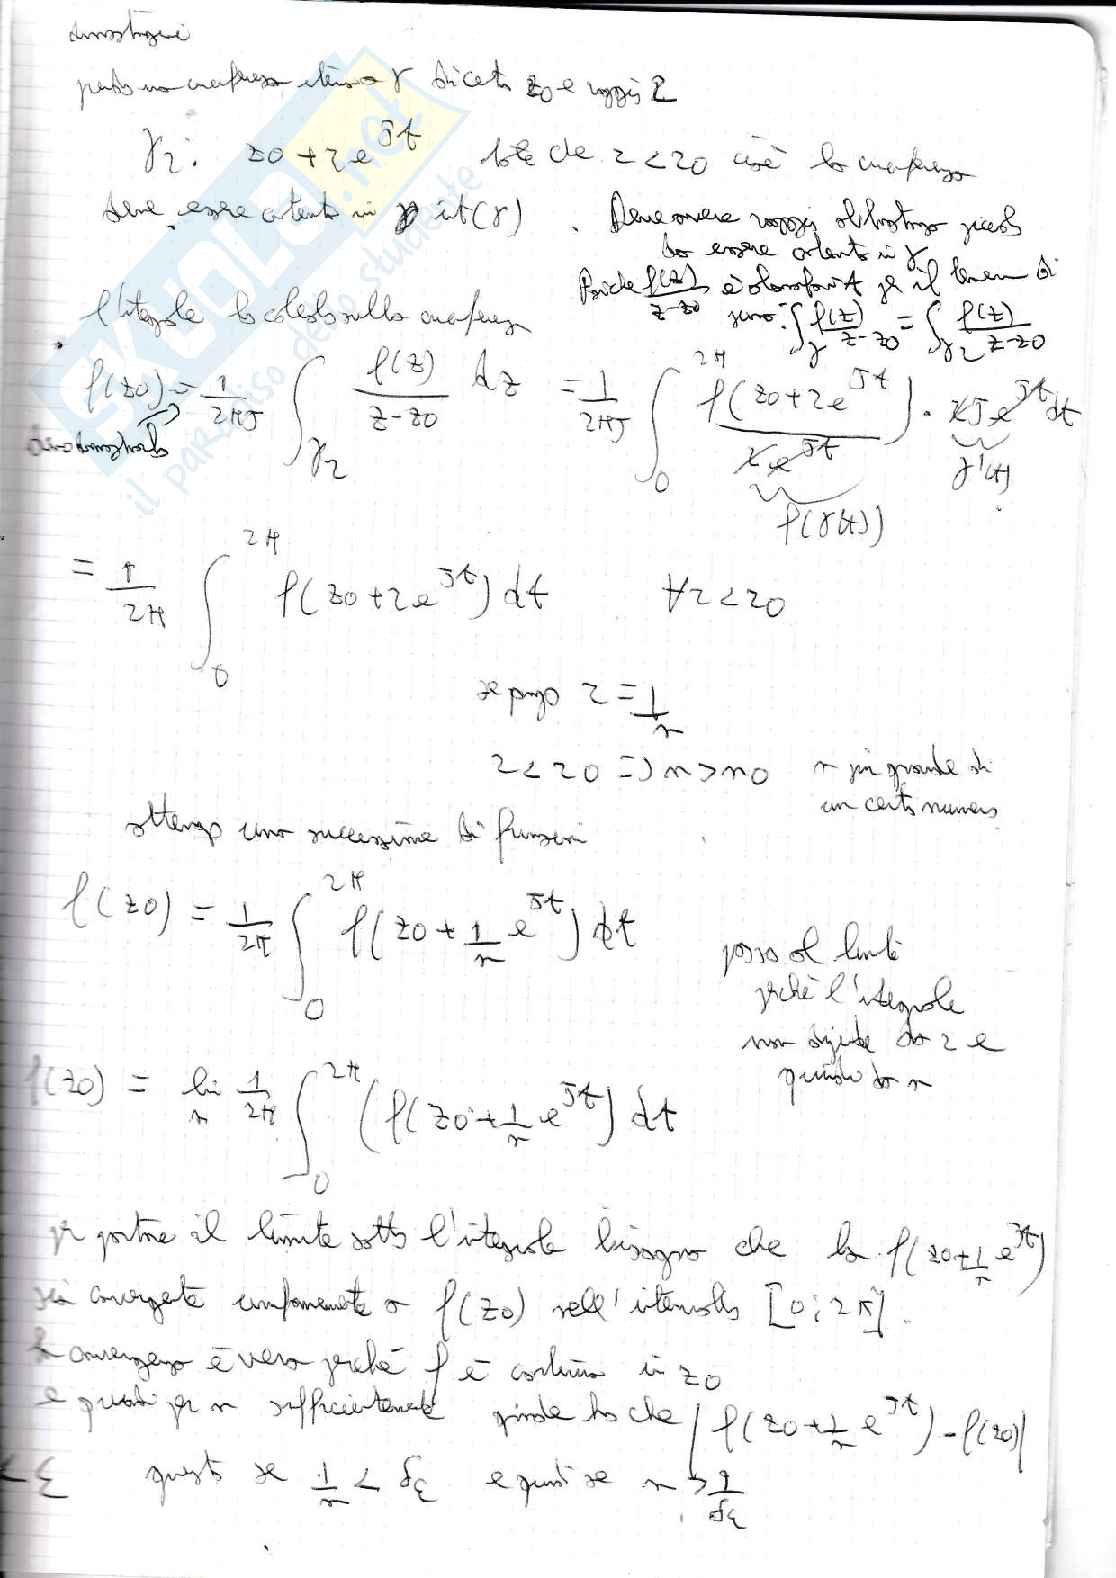 dimostrazione
prendo una circonferenza interna a γ di centro z0 e raggio r
γr: z0 + r e^{Jt} tale che r < r0 cioè la circonferenza
deve essere contenuta in int(γ). Deve avere raggio abbastanza piccolo
da essere contenuto in γ
Poiché f(z)/(z-z0) è olomorfa in A per il teorema di
l'integrale lo calcolo sulla circonferenza
∫_γ f(z)/(z-z0) = ∫_γr f(z)/(z-z0)
f(z0) = 1/(2πJ) ∫_γr f(z)/(z-z0) dz = 1/(2πJ) ∫_0^{2π} f(z0+re^{Jt})/(re^{Jt}) · rJe^{Jt} dt
devo dimostrarlo
γ'(t)
f(γ(t))
= 1/(2π) ∫_0^{2π} f(z0+re^{Jt}) dt ∀r<r0
se pongo r = 1/n
r < r0 => n > n0 n più grande di
un certo numero
ottengo una successione di funzioni
f(z0) = 1/(2π) ∫_0^{2π} f(z0 + 1/n e^{Jt}) dt
passo al limite
perché l'integrale
non dipende da r e
quindi da n
f(z0) = lim_n 1/(2π) ∫_0^{2π} (f(z0 + 1/n e^{Jt}) dt
per portare il limite sotto l'integrale bisogna che la f(z0 + 1/n e^{Jt})
sia convergente uniformemente a f(z0) nell'intervallo [0; 2π].
la convergenza è vera perché f è continua in z0
e quindi per n sufficientemente grande ho che |f(z0 + 1/n e^{Jt}) - f(z0)|
< ε questo se 1/n < δε e quindi se n > 1/δε
SKUOLA.net
il paradiso dello studente